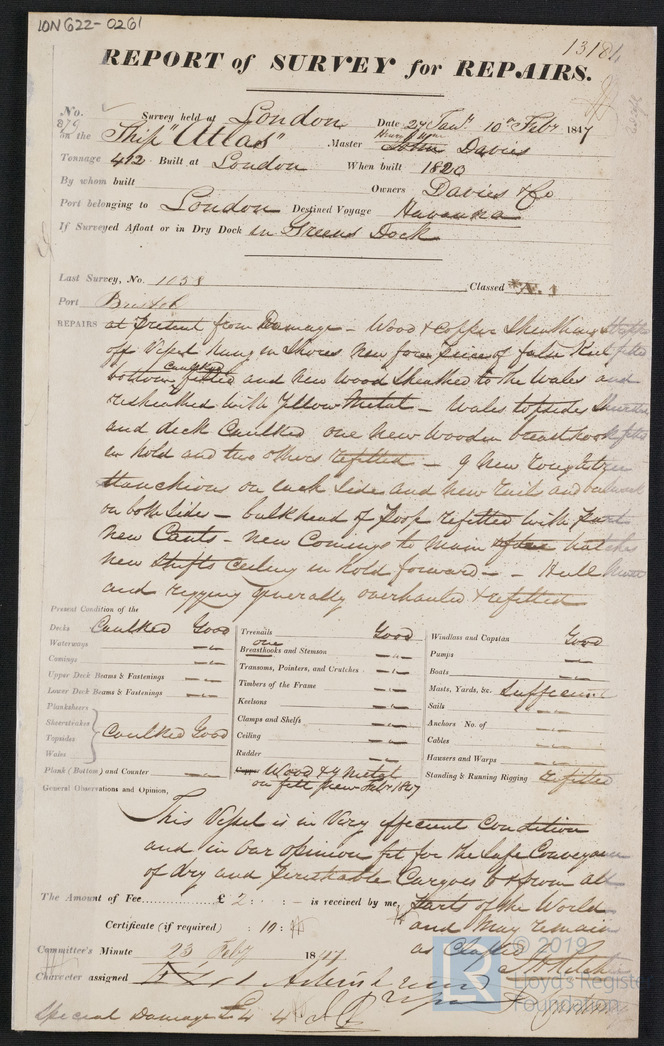 ION622-0261
13184
REPORT of SURVEY for REPAIRS.
No. 879 Survey held at London Date 27 Jany 10th Feby 1847
on the Ship "Atlas" Master John Davies
Tonnage 412 Built at London When built 1820
By whom built Owners Davies & Co
Port belonging to London Destined Voyage Havanna
If Surveyed Afloat or in Dry Dock in Greens Dock
Last Survey, No. 1158 Classed A.1
Port Bristol
REPAIRS at Present from Damage - Wood & Copper Sheathing Stripped
off Vessel hung in Shores New fore piece of false Keel fitted
bottom Caulked and new Wood Sheathed to the Wales and
resheathed with Yellow Metal - Wales topsides
and deck Caulked one new Wooden breasthook
in hold and two others refitted - 9 New
Stanchions on each Side and new rails and bulwark
on both Sides - bulkhead of Poop refitted with
New Cants - new Comings to Main Hatches
new Shifts Ceiling in Hold forward - Hull
and rigging generally overhauled & refitted
Present Condition of the
Decks Caulked Good
Waterways
Comings
Upper Deck Beams & Fastenings
Lower Deck Beams & Fastenings
Planksheers
Sheerstrakes
Topsides Caulked Good
Wales
Plank (Bottom) and Counter
Treenails Good
one
Breasthooks and Stemson
Transoms, Pointers, and Crutches
Timbers of the Frame
Keelsons
Clamps and Shelfs
Ceiling
Rudder
Copper Wood & Y Metal
on felt new Feby 1847
Windlass and Capstan Good
Pumps
Boats
Masts, Yards, &c. Sufficient
Sails
Anchors No. of
Cables
Hausers and Warps
Standing & Running Rigging refitted
General Observations and Opinion,
This Vessel is in Very efficient Condition
and in our opinion fit for the Safe Conveyance
of dry and Perishable Cargoes to & from all
The Amount of Fee £ 2 : : - is received by me, Parts of the World
Certificate (if required) : 10 : and May remain
Committee's Minute 23 Feby 1847 as Classed
Character assigned
Special Damage £4 4
© 2019
Lloyd's Register
Foundation